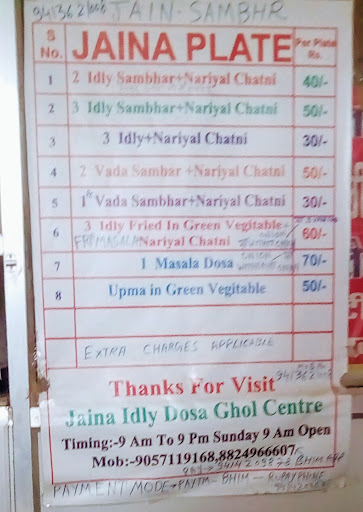 JAIN-SAMBHR
S No. JAINA PLATE Per Plate Rs.
1 2 Idly Sambhar+Nariyal Chatni 40/-
2 3 Idly Sambhar+Nariyal Chatni 50/-
3 3 Idly+Nariyal Chatni 30/-
4 2 Vada Sambar +Nariyal Chatni 50/-
5 1 Vada Sambhar+Nariyal Chatni 30/-
6 3 Idly Fried In Green Vegitable+
Nariyal Chatni 60/-
7 1 Masala Dosa 70/-
8 Upma in Green Vegitable 50/-
EXTRA CHARGES APPLICABLE
Thanks For Visit
Jaina Idly Dosa Ghol Centre
Timing:-9 Am To 9 Pm Sunday 9 Am Open
Mob:-9057119168,8824966607
PAYMENT MODE PAYTM - BHIM - RUPAY PHONE